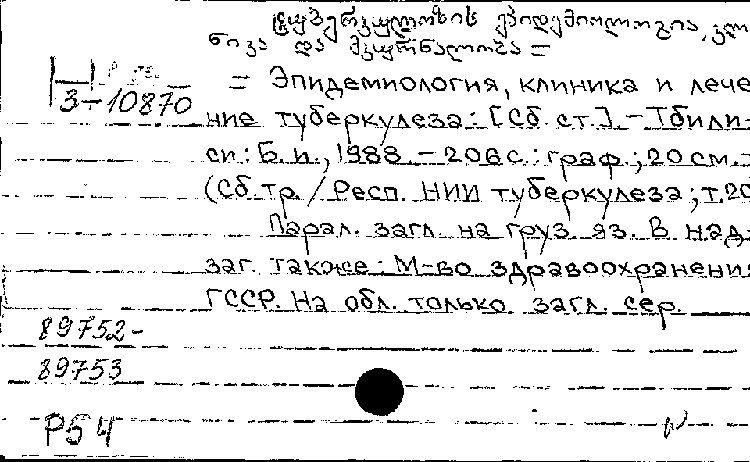 ტუბერკულოზის ეპიდემიოლოგია, კლი
ნიკა და მკურნალობა =
= Эпидемиология, клиника и лече
З-10870
ние туберкулеза: [Сб. ст.]. - Тбили-
си: Б. и., 1988. - 206 с.: граф.; 20 см. -
(Сб. тр. / Респ. НИИ туберкулеза; т. 20
Парал. загл. на груз. яз. В над-
заг. также: М-во здравоохранения
ГССР. На обл. только загл. сер.
89752-
89753
Р54